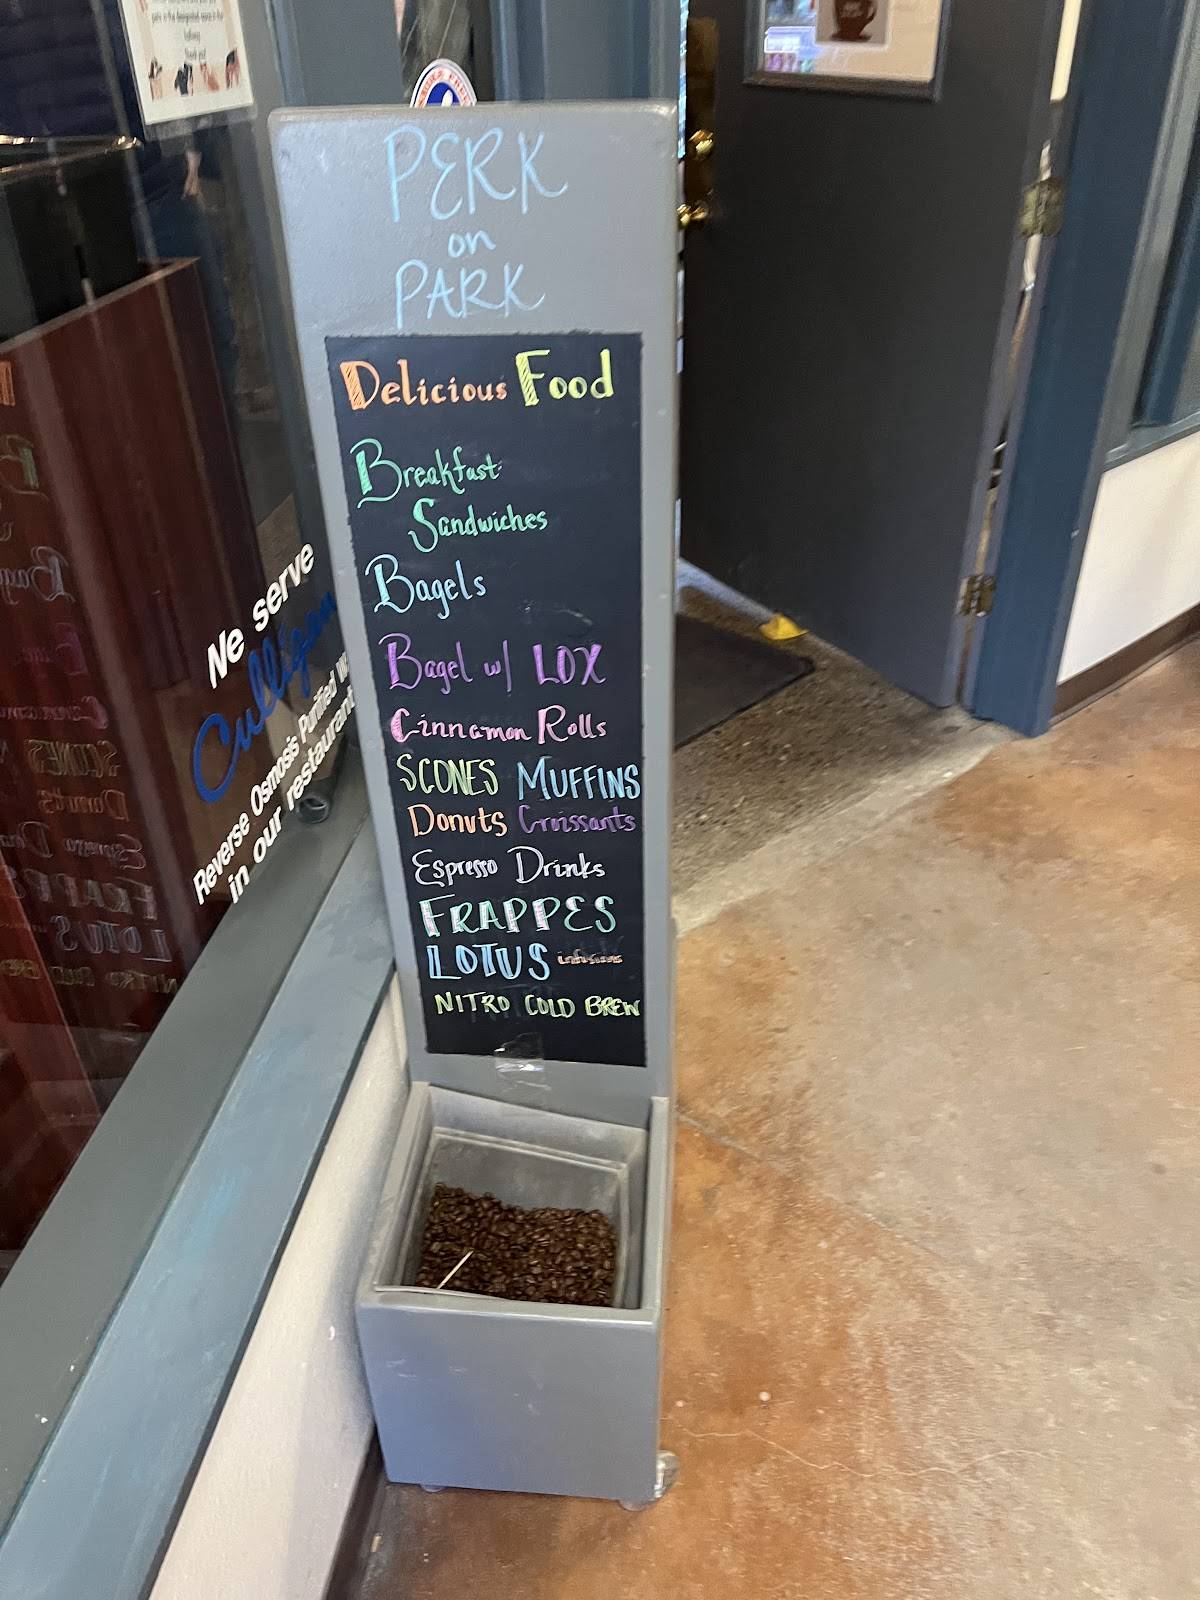 park in the designated areas in the
hallway.
Thank you!
PERK
on
PARK
Delicious Food
Breakfast
Sandwiches
Bagels
Bagel w/ LOX
Cinnamon Rolls
SCONES MUFFINS
Donuts Croissants
Espresso Drinks
FRAPPES
LOTUS infusions
NITRO COLD BREW
We serve
Culligan
Reverse Osmosis Purified
in our restaurant